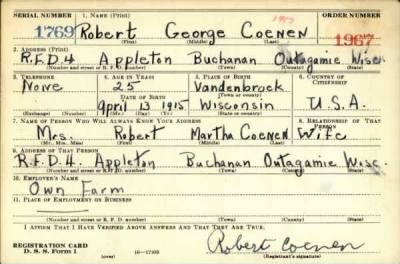 SERIAL NUMBER 1. NAME (Print) ORDER NUMBER
1769 Robert George Coenen 1967
(First) (Middle) (Last)
2. ADDRESS (Print)
R.F.D.4 Appleton Buchanan Outagamie Wisc.
(Number and street or R. F. D. number) (Town) (County) (State)
3. TELEPHONE 4. AGE IN YEARS 5. PLACE OF BIRTH 6. COUNTRY OF CITIZENSHIP
None 25 Vandenbroek
DATE OF BIRTH (Town or county)
April 13 1915 Wisconsin U.S.A.
(Exchange) (Number) (Mo.) (Day) (Yr.) (State or country)
7. NAME OF PERSON WHO WILL ALWAYS KNOW YOUR ADDRESS 8. RELATIONSHIP OF THAT PERSON
Mrs. Robert Martha Coenen Wife
(Mr., Mrs., Miss) (First) (Middle) (Last)
9. ADDRESS OF THAT PERSON
R.F.D.4. Appleton Buchanan Outagamie Wisc.
(Number and street or R. F. D. number) (Town) (County) (State)
10. EMPLOYER'S NAME
Own Farm
11. PLACE OF EMPLOYMENT OR BUSINESS
(Number and street or R. F. D. number) (Town) (County) (State)
I AFFIRM THAT I HAVE VERIFIED ABOVE ANSWERS AND THAT THEY ARE TRUE.
REGISTRATION CARD Robert Coenen
D. S. S. Form 1 (over) (Registrant's signature)